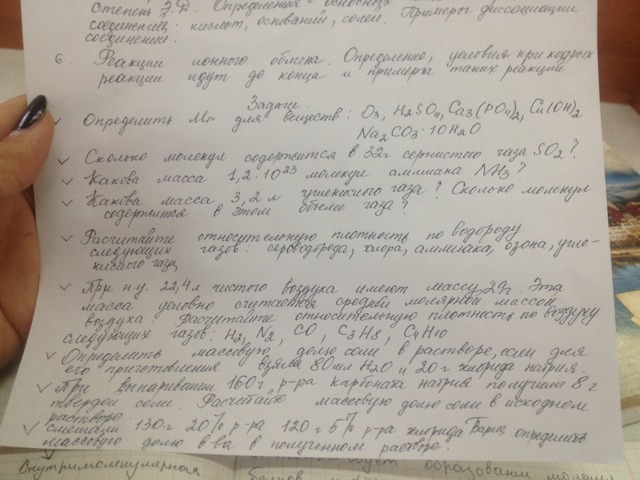 Степень Э.Д. Определения основных
соединения: кислот, оснований, солей. Примеры диссоциации
соединений.
6. Реакции ионного обмена. Определение, условия при которых
реакции идут до конца и примеры таких реакций.
Задачи.
Определить Mr для веществ: O3, H2SO4, Ca3(PO4)2, Cu(OH)2
Na2CO3·10H2O
Сколько молекул содержится в 32г сернистого газа SO2?
Какова масса 1,2·10^23 молекул аммиака NH3?
Какова масса 3,2 л углекислого газа? Сколько молекул
содержится в этом объеме газа?
Расчитайте относительную плотность по водороду
следующих газов: сероводорода, хлора, аммиака, озона, угле-
кислого газа.
При н.у. 22,4л чистого воздуха имеют массу 29г. Эта
масса условно считается средней молярной массой
воздуха. Расчитайте относительную плотность по воздуху
следующих газов: H2, N2, CO, C3H8, C4H10
Определить массовую долю соли в растворе, если для
его приготовления взяли 80мл H2O и 20г хлорида натрия.
При выпаривании 160г р-ра карбоната натрия получили 8г
твердой соли. Расчитайте массовую долю соли в исходном
растворе.
Смешали 130г 20% р-ра 120г 5% р-ра хлорида Бария, определить
массовую долю в-ва в полученном растворе.
Внутримолекулярная
образовании